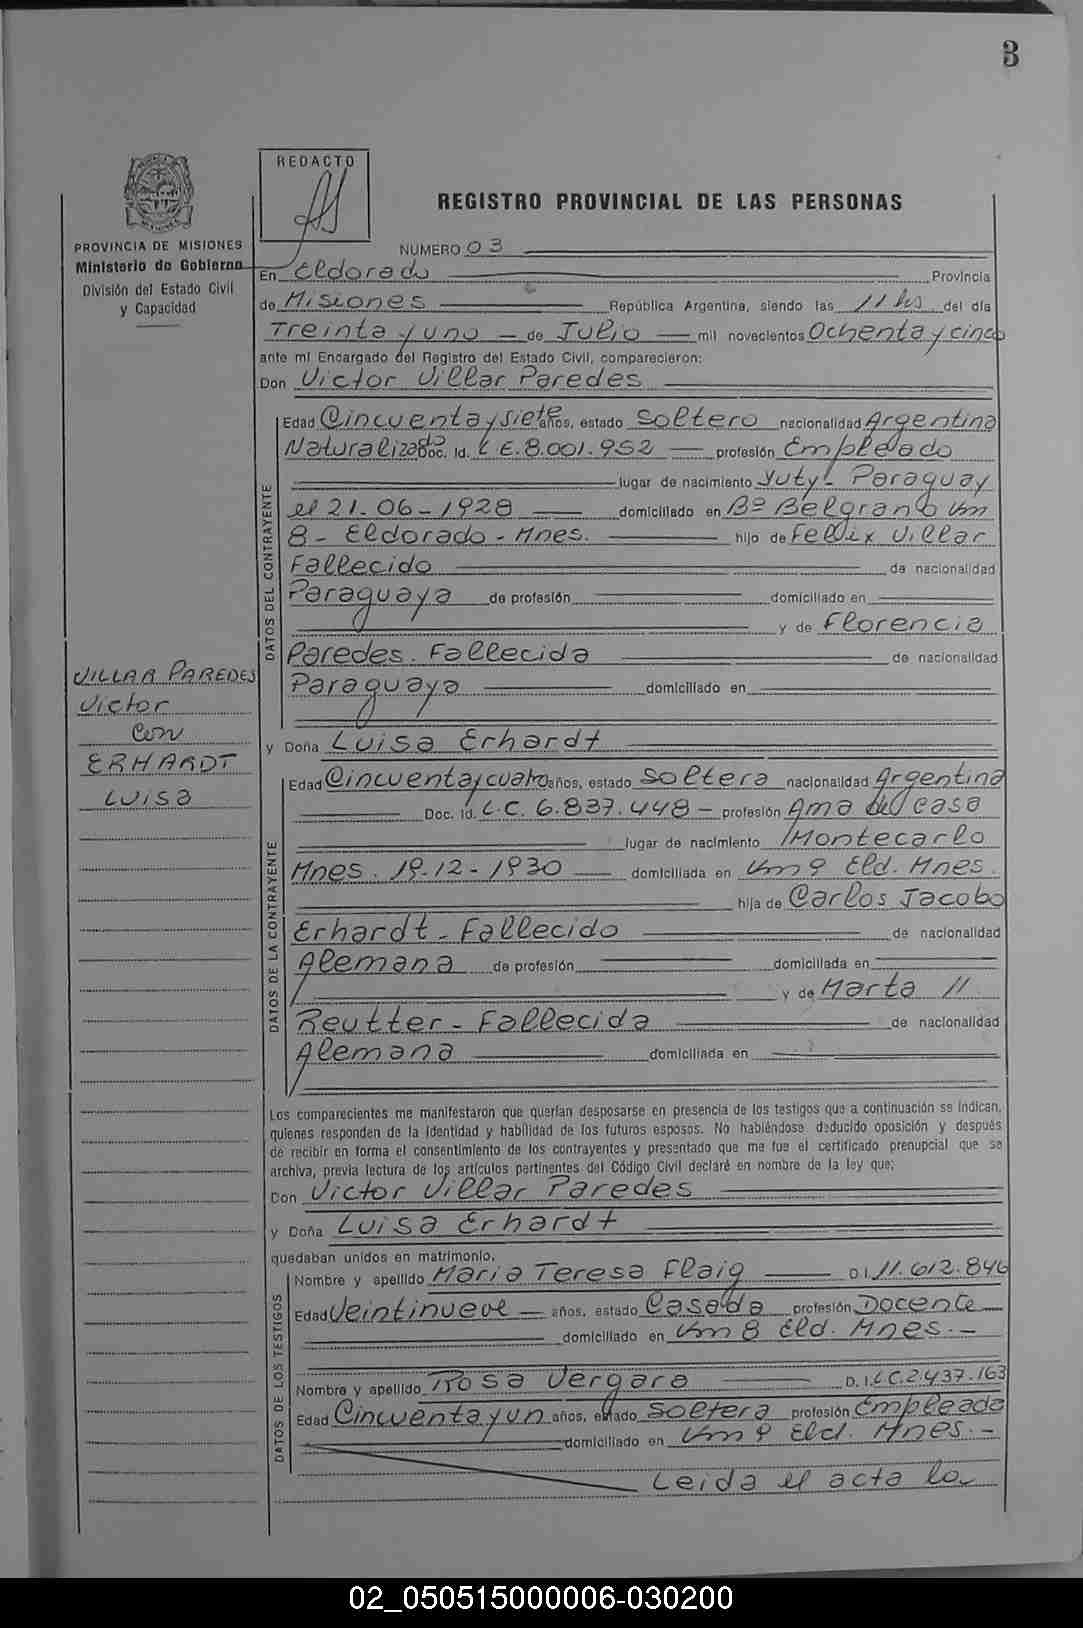 3
REDACTO
REGISTRO PROVINCIAL DE LAS PERSONAS
PROVINCIA DE MISIONES
Ministerio de Gobierno
División del Estado Civil
y Capacidad
NUMERO 03
En Eldorado Provincia
de Misiones República Argentina, siendo las 11 hs del día
Treinta y uno - de Julio - mil novecientos Ochenta y cinco
ante mí Encargado del Registro del Estado Civil, comparecieron:
Don Victor Villar Paredes
DATOS DEL CONTRAYENTE
Edad Cincuenta y siete años, estado Soltero nacionalidad Argentina
Naturalizado Doc. Id. L.E. 8.001.952 — profesión Empleado
lugar de nacimiento Yuty - Paraguay
el 21-06-1928 domiciliado en Bº Belgrano Km
8 - Eldorado - Mnes. hijo de Felix Villar
Fallecido de nacionalidad
Paraguaya de profesión domiciliado en
y de Florencia
Paredes. Fallecida de nacionalidad
Paraguaya domiciliado en
VILLAR PAREDES
Victor
con
ERHARDT
LUISA
y Doña Luisa Erhardt
DATOS DE LA CONTRAYENTE
Edad Cincuenta y cuatro años, estado Soltera nacionalidad Argentina
Doc. Id. L.C. 6.837.448 - profesión Ama de casa
lugar de nacimiento Montecarlo
Mnes. 19-12-1930 domiciliada en Km 9 Eld. Mnes.
hija de Carlos Jacobo
Erhardt - Fallecido de nacionalidad
Alemana de profesión domiciliada en
y de Marta
Reutter - Fallecida de nacionalidad
Alemana domiciliada en
Los comparecientes me manifestaron que querían desposarse en presencia de los testigos que a continuación se indican,
quienes responden de la identidad y habilidad de los futuros esposos. No habiéndose deducido oposición y después
de recibir en forma el consentimiento de los contrayentes y presentado que me fue el certificado prenupcial que se
archiva, previa lectura de los artículos pertinentes del Código Civil declaré en nombre de la ley que:
Don Victor Villar Paredes
y Doña Luisa Erhardt
quedaban unidos en matrimonio.
DATOS DE LOS TESTIGOS
Nombre y apellido Maria Teresa Flaig D I 11.612.846
Edad Veintinueve - años, estado Casada profesión Docente
domiciliado en Km 8 Eld. Mnes. -
Nombre y apellido Rosa Vergara D. I. L.C. 2.437.163
Edad Cincuenta y un años, estado Soltera profesión Empleada
domiciliado en Km 9 Eld. Mnes. -
Leida el acta la
02_050515000006-030200